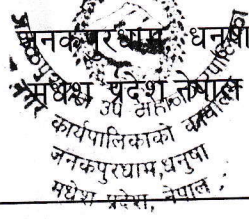 जनकपुरधाम, धनुषा
मधेश प्रदेश, नेपाल
जनकपुरधाम उप महानगरपालिका
नगर कार्यपालिकाको कार्यालय
जनकपुरधाम, धनुषा
मधेश प्रदेश, नेपाल